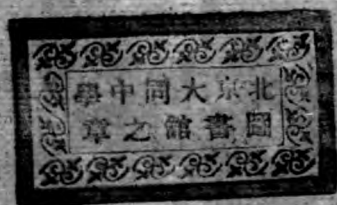 北京大同中學
圖書館之章